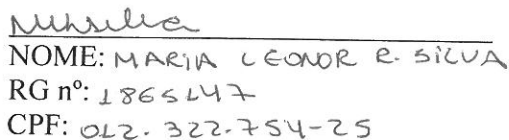 NOME: MARIA LEONOR R. SILVA
RG nº: 1865147
CPF: 012.322.754-25